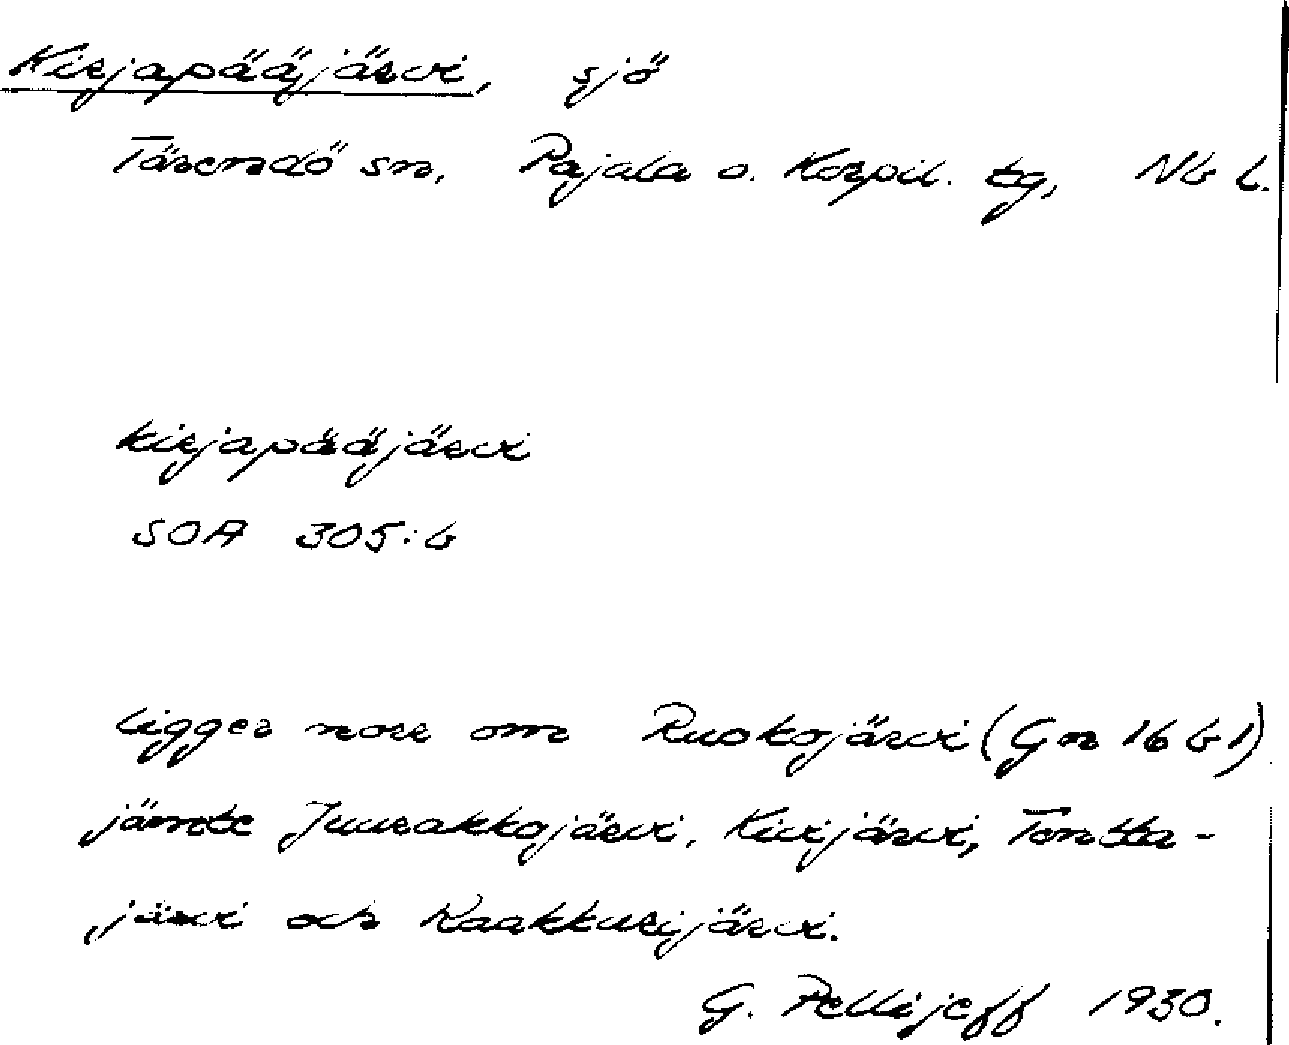 Kirjapääjärvi, sjö
Tärendö sn, Pajala o. Korpil. tg, Nb l.
kirjapääjärvi
SOA 305:6
ligger norr om Ruokojärvi (Gn 16 b 1)
jämte Juurakkojärvi, Kivijärvi, Tontta-
järvi och Kaakkurijärvi.
G. Pellijeff 1930.